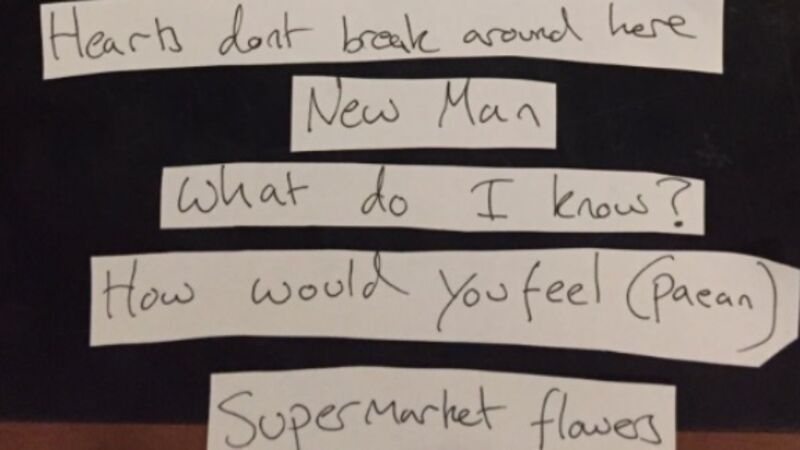 Hearts dont break around here
New Man
What do I know?
How would you feel (paean)
Supermarket flowers